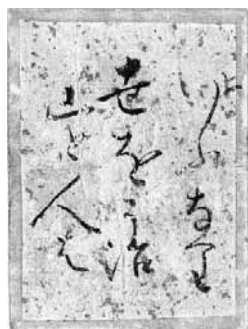 いふなり
世をう治
山と人は